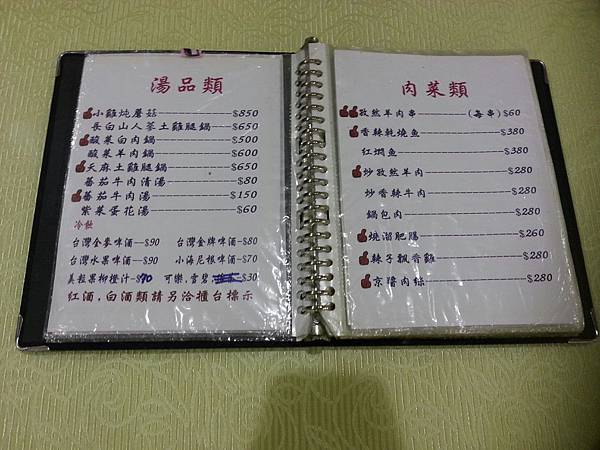 湯品類
小雞炖蘑菇—$850
長白山人蔘土雞腿鍋—$650
酸菜白肉鍋—$500
酸菜羊肉鍋—$600
天麻土雞腿鍋—$650
蕃茄牛肉清湯—$80
蕃茄牛肉湯—$150
紫菜蛋花湯—$60
冷飲
台灣全麥啤酒—$90 台灣金牌啤酒—$80
台灣水果啤酒—$90 小海尼根啤酒—$70
美粒果柳橙汁—$70 可樂,雪碧 $30
紅酒,白酒類請另洽櫃台標示
肉菜類
孜然羊肉串—(每串)$60
香辣乾燒魚—$380
紅燜魚—$380
炒孜然羊肉—$280
炒香辣牛肉—$280
鍋包肉—$280
燒溜肥腸—$260
辣子飄香雞—$280
京醬肉絲—$280